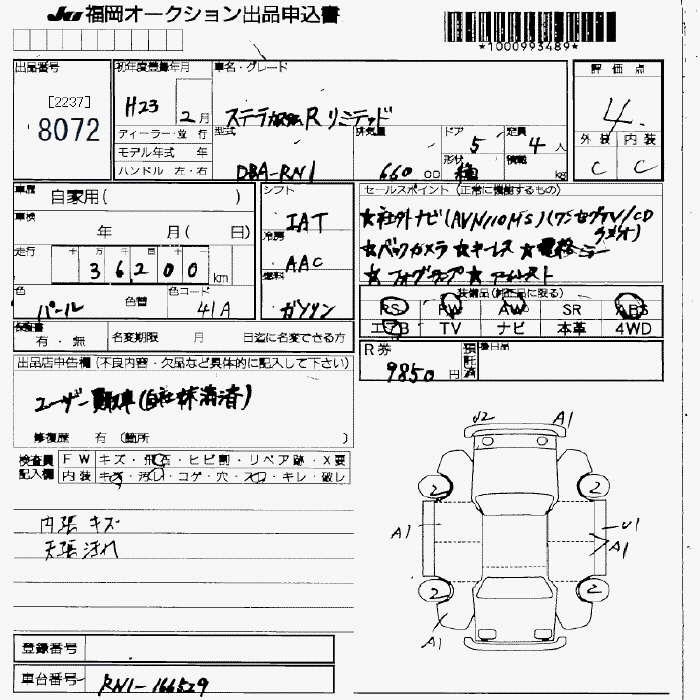 JU 福岡オークション出品申込書
*1000993489*
出品番号
[2237]
8072
初年度登録年月
H23 2月
ディーラー・並行
モデル年式 年
ハンドル 左・右
車名・グレード
ステラ Rリミテッド
型式 排気量 ドア 定員
DBA-RN1 660 cc 5 4人
形状 積載
箱 kg
評価点
4
外装 内装
C C
車歴 自家用( )
車検 年 月( 日)
走行 十 万 千 百 十
36200 km
色 色替 色コード
パール 41A
シフト
IAT
冷房
AAC
燃料
ガソリン
セールスポイント(正常に機能するもの)
★社外ナビ(AVN110MS)(ワンセグTV/CD
ラジオ)
★バックカメラ ★キーレス ★電格ミラー
★フォグランプ ★
装備品(純正品に限る)
PS PW AW SR ABS
エアB TV ナビ 本革 4WD
検査書
有・無
名変期限 月 日迄に名変できる方
R券 9850円 預託済
後日品
出品店申告欄(不良内容・欠品など具体的に記入して下さい)
ユーザー買取車(自社抹消済)
修復歴 有 (箇所 )
検査員
記入欄
FW キズ・飛石・ヒビ割・リペア跡・X要
内装 キズ・汚れ・コゲ・穴・スレ・キレ・破レ
内張キズ
天張汚れ
U2 A1
2 2
A1 U1
A1
2 2
A1
登録番号
車台番号 RN1-166529